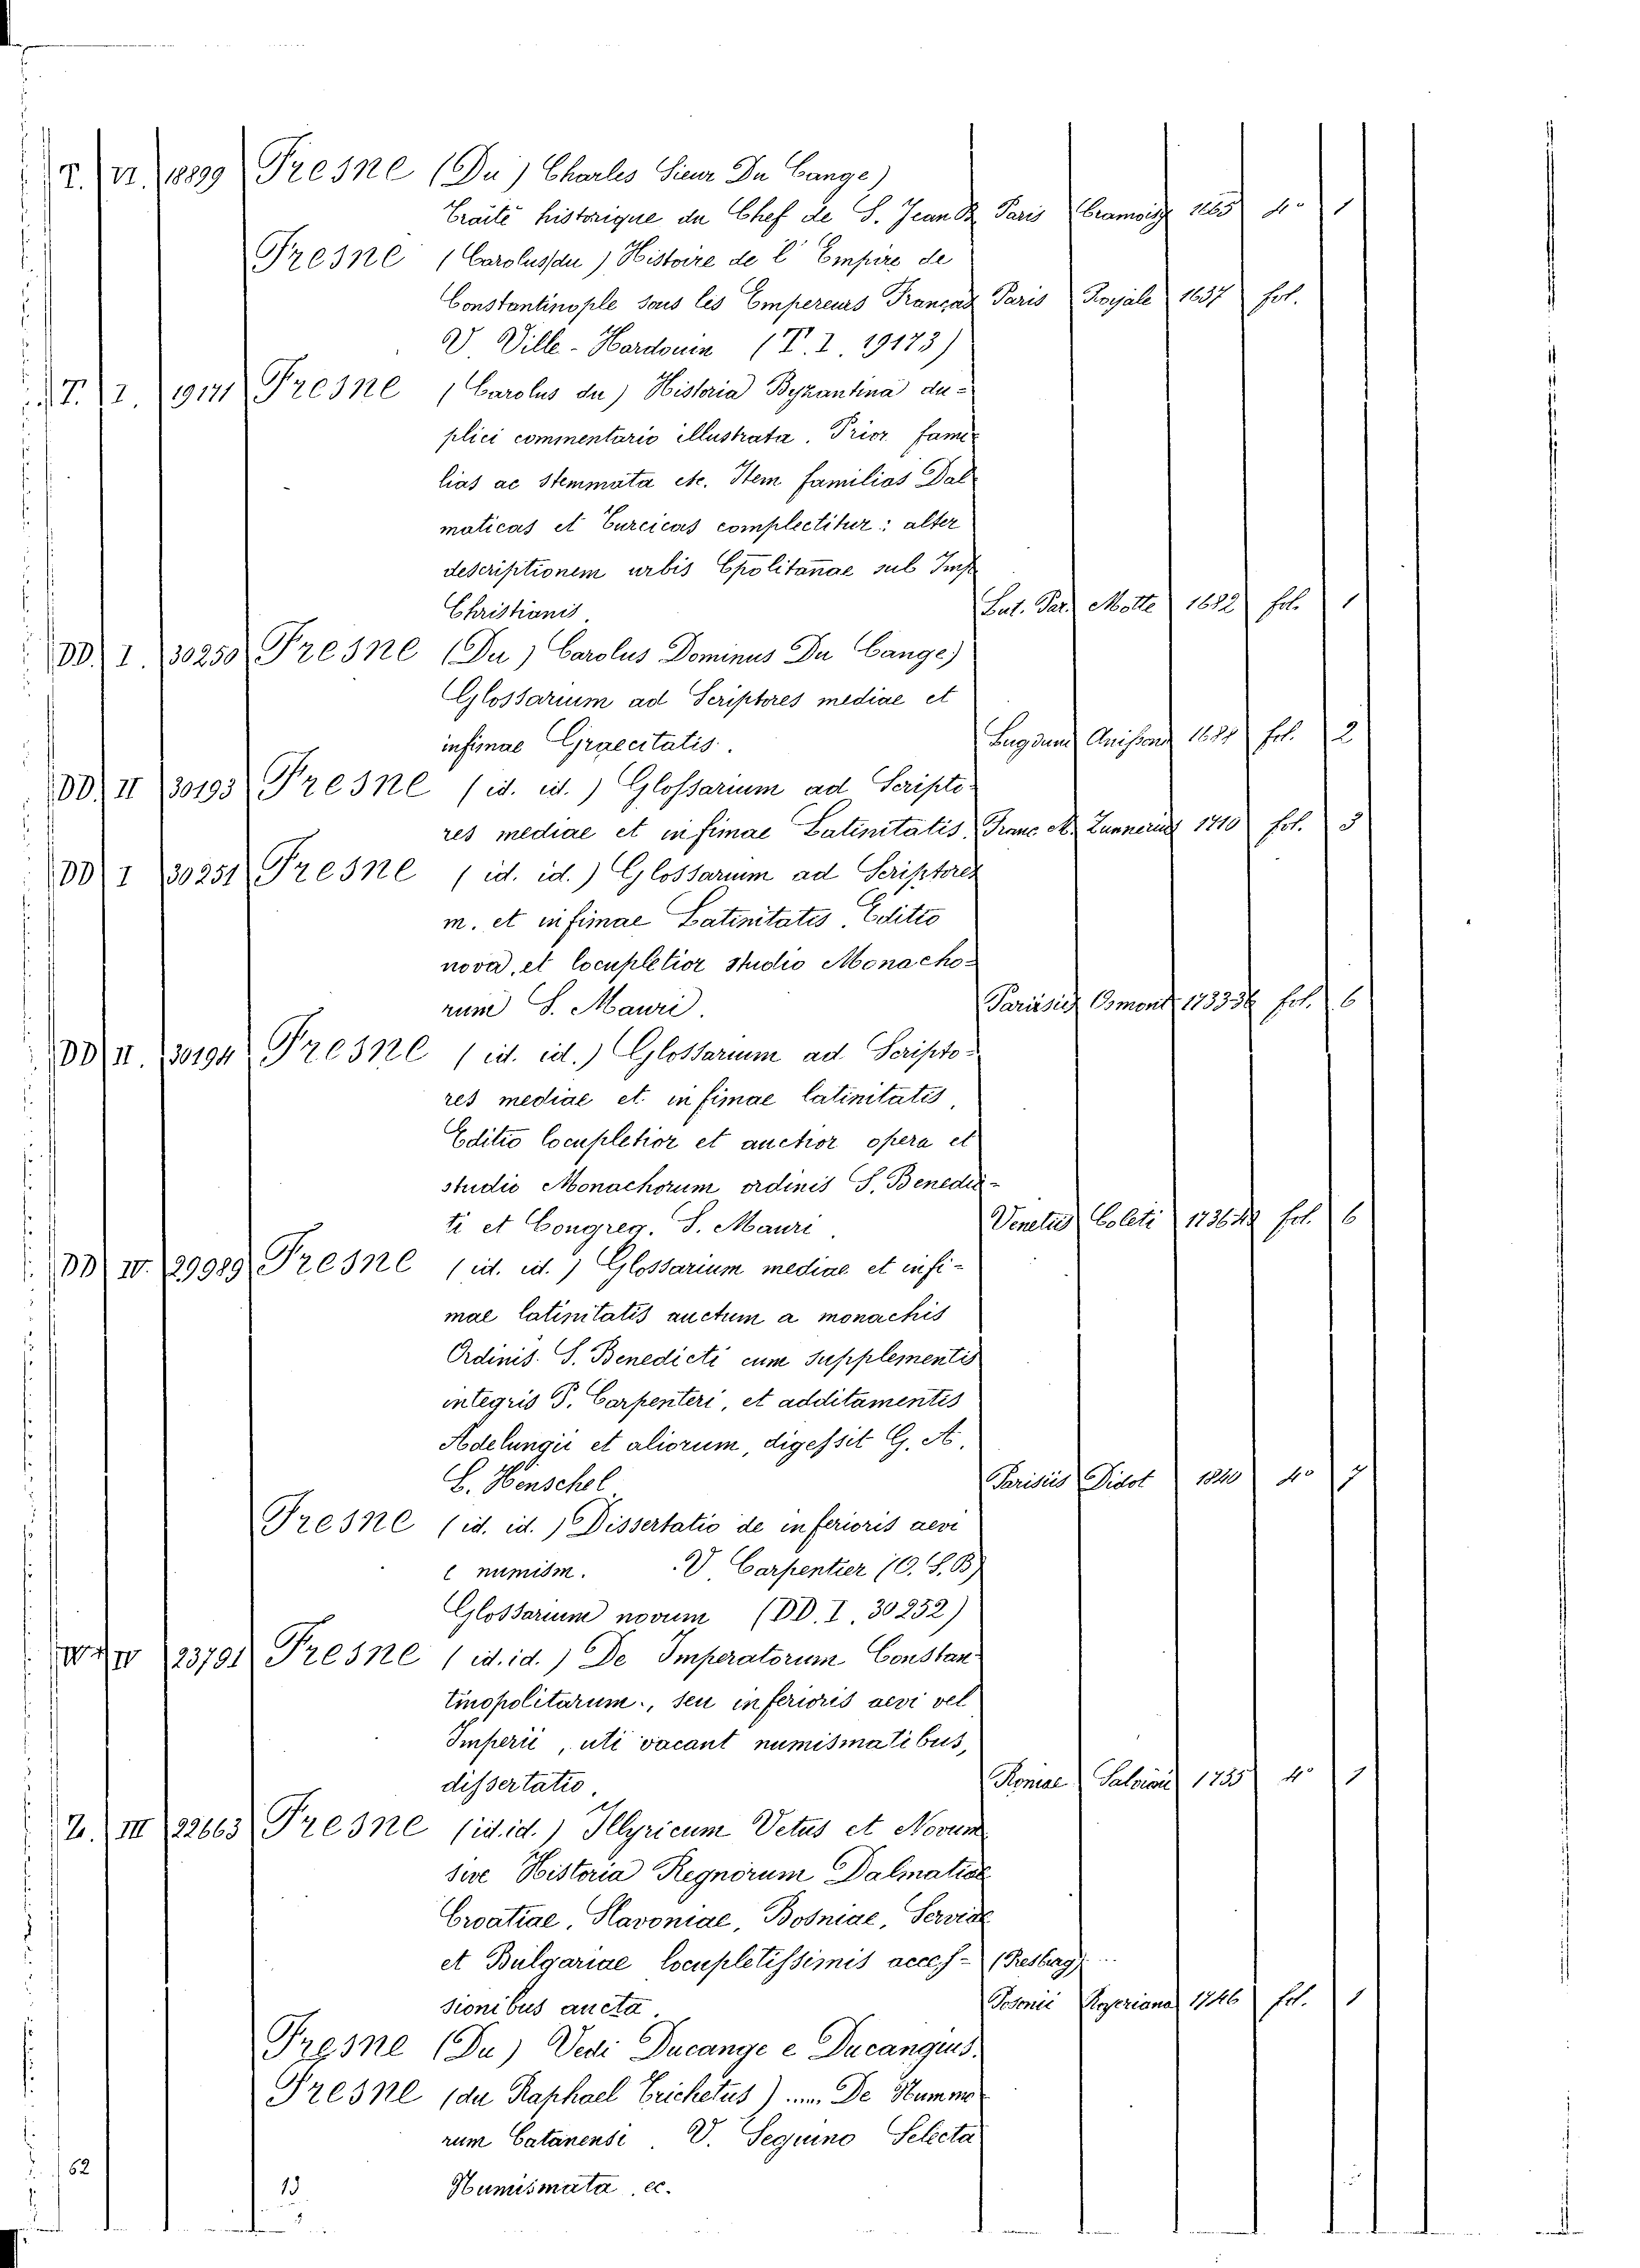 T. VI. 18899 Fresne (Du) Charles Sieur Du Cange)
Traité historique du Chef de S. Jean B. Paris Cramoisy 1665 4° 1
Fresne (Carolus du) Histoire de l' Empire de
Constantinople sous les Empereurs Français Paris Royale 1657 fol.
V. Ville-Hardouin (T. I. 19173)
T. I. 19171 Fresne (Carolus du) Historia Byzantina du-
plici commentario illustrata. Prior fami-
lias ac stemmata etc. Item familias Dal-
maticas et Turcicas complectitur: alter
descriptionem urbis Cpolitanae sub Imp
Christianis. Lut. Par. Motte 1682 fol. 1
DD. I. 30250 Fresne (Du) Carolus Dominus Du Cange)
Glossarium ad Scriptores mediae et
infimae Graecitatis. Lugduni Anisson 1688 fol. 2
DD. II 30193 Fresne (id. id.) Glossarium ad Scripto-
res mediae et infimae Latinitatis. Franc. M. Zunnerus 1710 fol. 3
DD I 30251 Fresne (id. id.) Glossarium ad Scriptores
m. et infimae Latinitatis. Editio
nova, et locupletior studio Monacho-
rum S. Mauri. Parisiis Osmont 1733-36 fol. 6
DD II. 30194 Fresne (id. id.) Glossarium ad Scripto-
res mediae et infimae latinitatis,
Editio locupletior et auctior opera et
studio Monachorum ordinis S. Benedic-
ti et Congreg. S. Mauri. Venetiis Coleti 1736-40 fol. 6
DD IV. 29989 Fresne (id. id.) Glossarium mediae et infi-
mae latinitatis auctum a monachis
Ordinis S. Benedicti cum supplementis
integris P. Carpenteri, et additamentis
Adelungii et aliorum, digessit G. A.
L. Henschel Parisiis Didot 1840 4° 7
Fresne (id. id.) Dissertatio de inferioris aevi
numism. V. Carpentier (O. S. B)
Glossarium novum (DD. I. 30252)
IV 23791 Fresne (id. id.) De Imperatorum Constan-
tinopolitarum., seu inferioris aevi vel
Imperii, uti vacant numismatibus,
dissertatio. Romae Salvioni 1755 4° 1
Z. III 22663 Fresne (id. id.) Illyricum Vetus et Novum
sive Historia Regnorum Dalmatiae
Croatiae, Slavoniae, Bosniae, Serviae
et Bulgariae locupletissimis acces- (Presburg)
sionibus aucta. Posonii Royeriana 1746 fol. 1
Fresne (Du) Vedi Ducange e Ducangius.
Fresne (du Raphael Trichetus) .... De Nummo
rum Catanensi. V. Seguino Selecta
Numismata. ec.
62
13